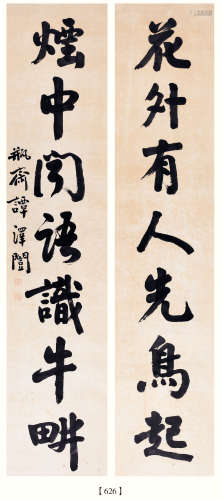 花外有人先鳥起
煙中聞語識牛畊
瓶齋譚澤闓
【626】